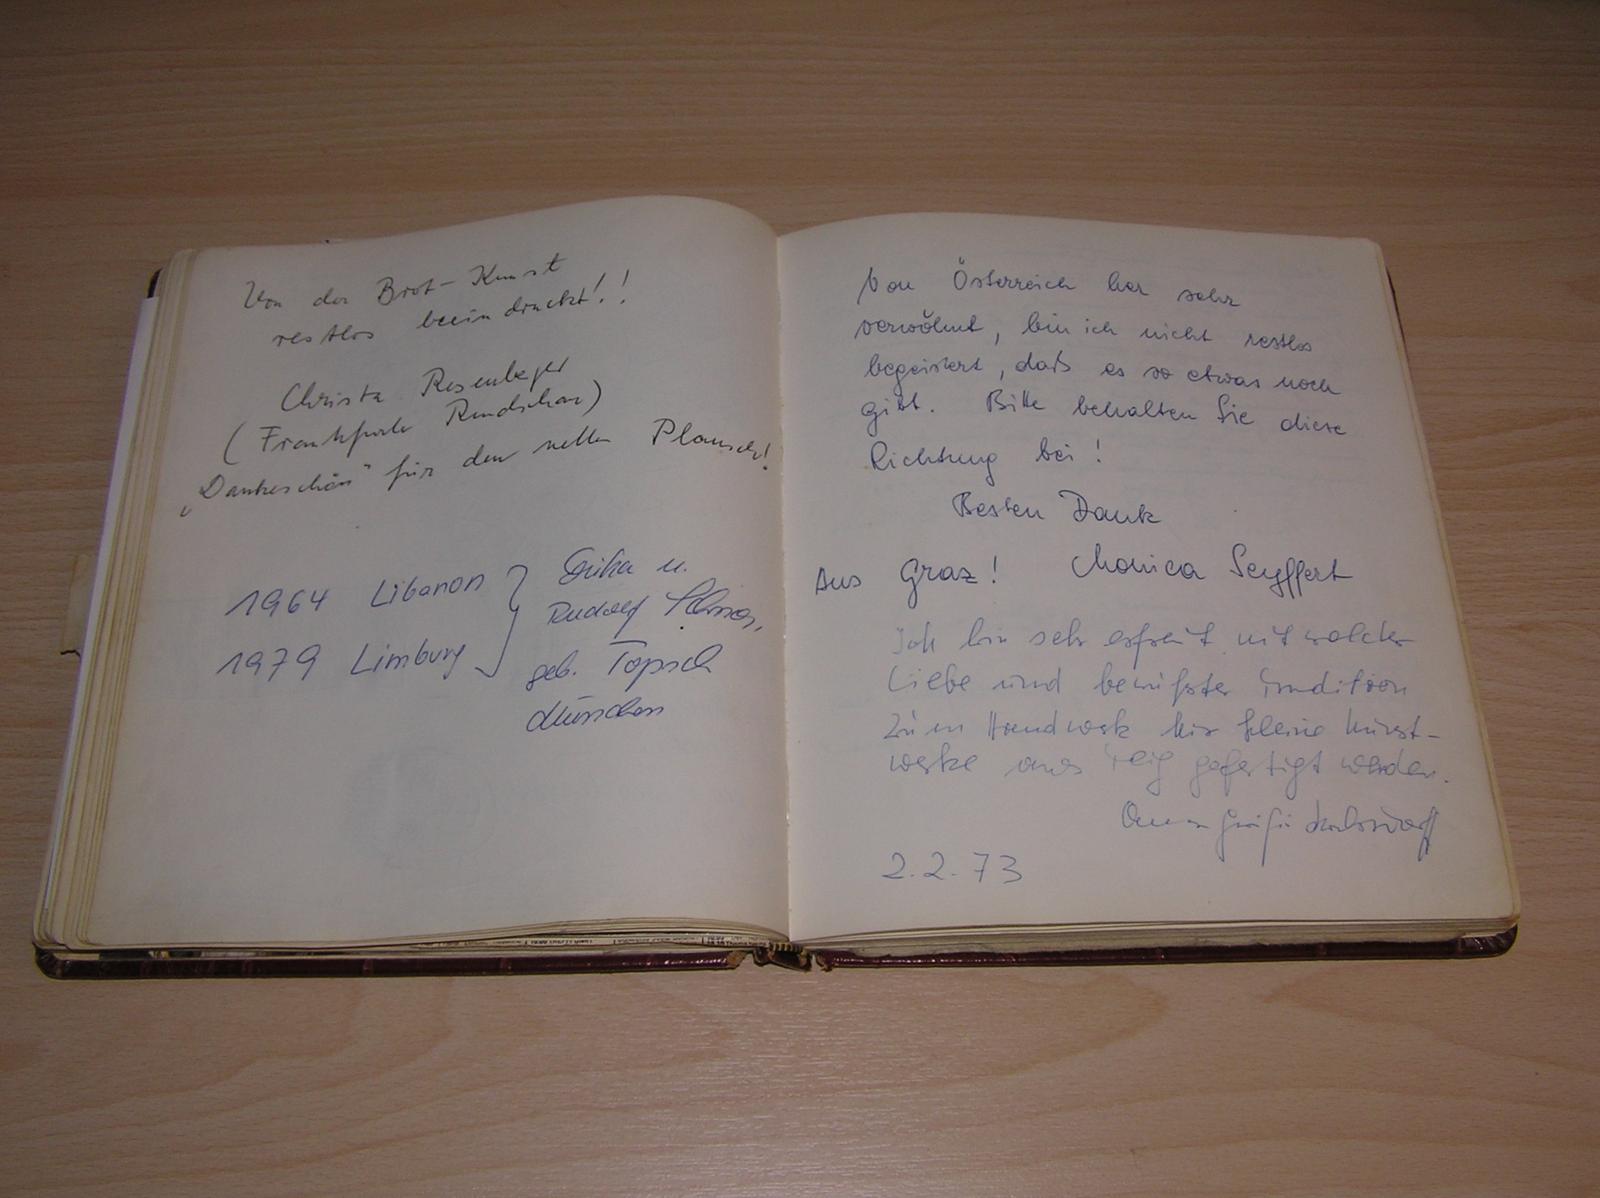 Von der Brot-Kunst
restlos beeindruckt!!
Christa Rosenberger
(Frankfurter Rundschau)
„Dankeschön" für den netten Plausch!
1964 Libanon
1979 Limburg
Erika u.
Rudolf
geb. Topsch
München
Von Österreich her sehr
verwöhnt, bin ich nicht restlos
begeistert, daß es so etwas noch
gibt. Bitte behalten Sie diese
Richtung bei!
Besten Dank
Aus Graz! Monica Seyffert
Ich bin sehr erfreut mit welcher
Liebe und bewußter Tradition
zum Handwerk hier kleine Kunst-
werke aus Teig gefertigt werden.
2.2.73